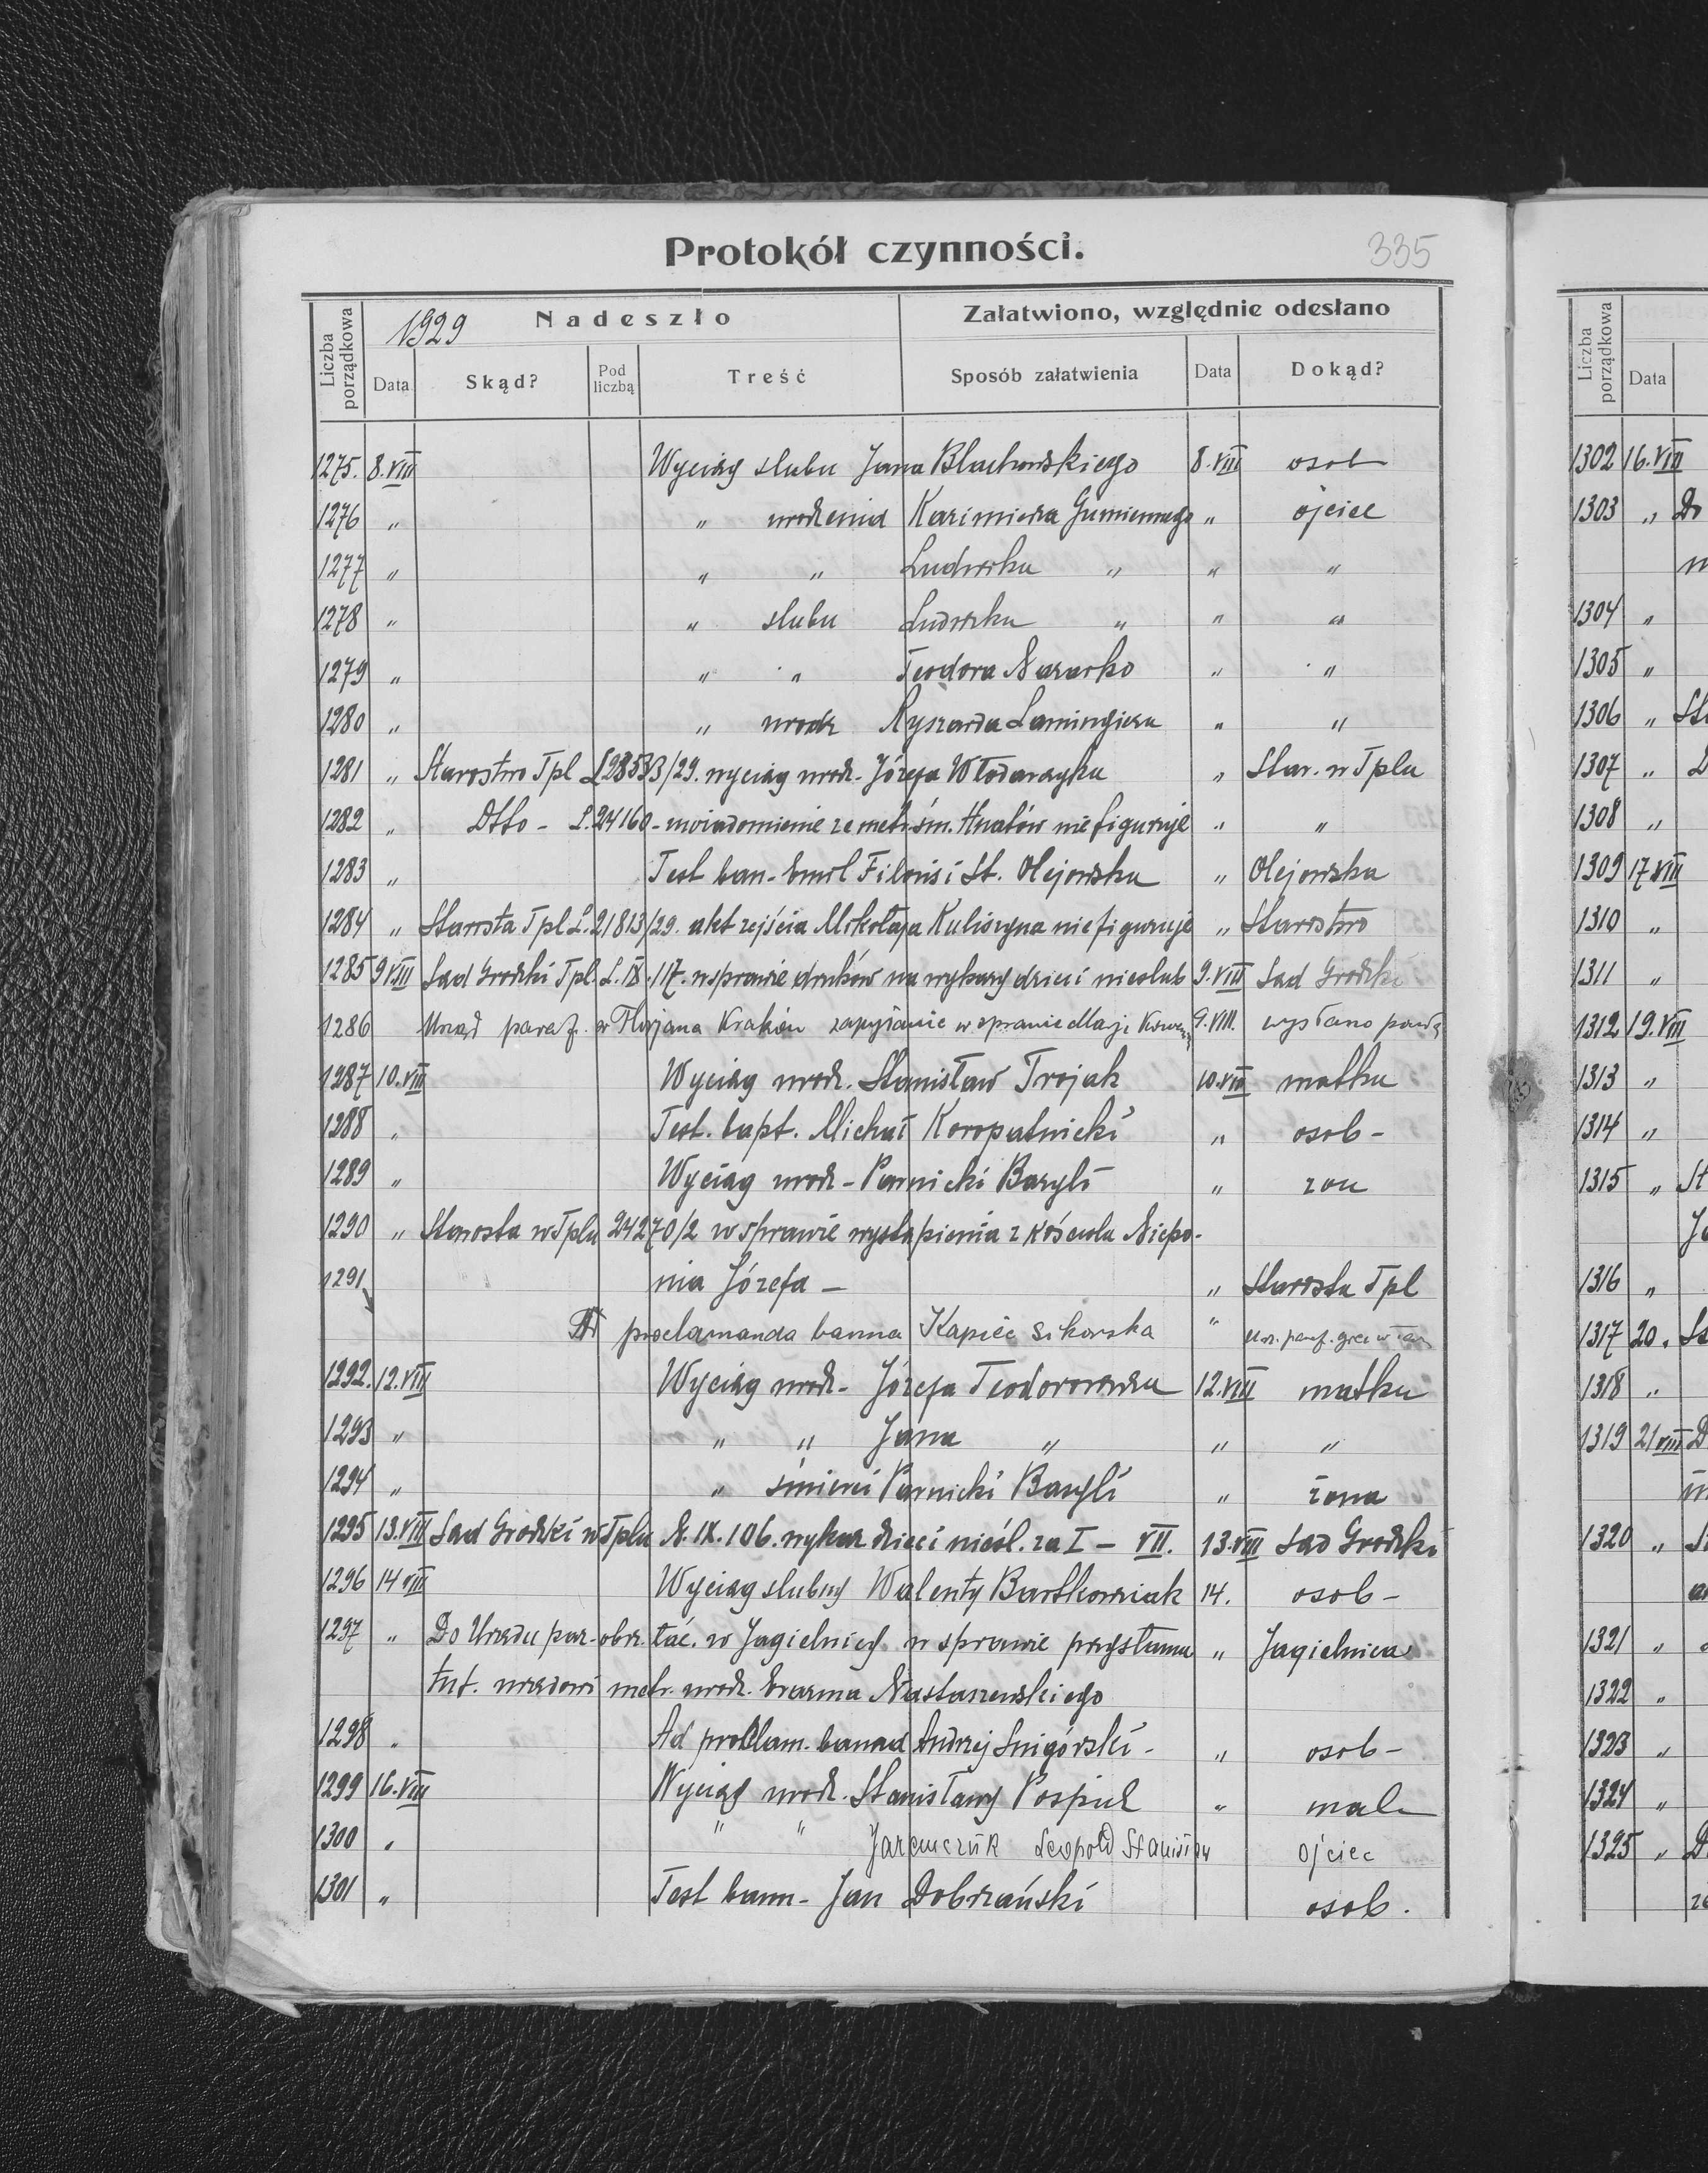 Protokół czynności.
335
Liczba porządkowa
1929 Nadeszło
Załatwiono, względnie odesłano
Data Skąd? Pod liczbą Treść Sposób załatwienia Data Dokąd?
1275. 8.VIII Wyciąg slubu Jana Blachowskiego 8.VIII osob
1276 " " urodzenia Kazimierza Gumiennego " ojciec
1277 " " " Ludwika " " "
1278 " " slubu Ludwika " " "
1279 " " " Teodora Nazarko " "
1280 " " urodz Ryszarda " "
1281 " Starostwo Tpl L28533/29. wyciąg urodz. Józefa Włodarczyka " Star. w Tplu
1282 " Dtto - L.24160 - uwiadomienie ze metr. śm. Hnatów nie figuruje " "
1283 " Test ban - Emil Filoński St. Olejowska " Olejowska
1284 " Starosta Tpl L.21813/29. akt zejścia Mikołaja Kuliszyna nie figuruje " Starostwo
1285 9VIII Sąd Grodzki Tpl. L.IX.117. w sprawie druków na wykazy dzieci nieslub 9.VIII Sąd Grodzki
1286 Urząd paraf. w Florjana Kraków zapytanie w sprawie Marji 9.VIII. wysłano
1287 10.VIII Wyciąg urodz. Stanisław Trojak 10.VIII matka
1288 " Test. bapt. Michał Koropatnicki " osob -
1289 " Wyciąg urodz - Parnicki Bazyli " zon
1290 " Starosta w Tplu 24270/2 w sprawie wystąpienia z kościoła Niepo-
1291 nia Józefa - " Starosta Tpl
Ad proclamanda banna Kapiec Sikorska " Urz. paraf. grec
1292. 12.VIII Wyciąg urodz - Józefa 12.VIII matka
1293 " " " Jana " " "
1294 " " śmierci Parnicki Bazyli " żona
1295 13.VIII Sąd Grodzki w Tplu N.IX.106. wykaz dzieci nieśl. za I - VII. 13.VIII Sąd Grodzki
1296 14 VIII Wyciąg slubny Walenty Bartkowiak 14. osob -
1297 " Do Urzędu par. obrz. łać. w Jagielnicy w sprawie przysłania " Jagielnica
tut. urzędowi metr. urodz. Erazma Nastaszewskiego
1298 " Ad proklam. banna Andrzej Snigórski - " osob -
1299 16.VIII Wyciąg urodz. Stanisławy Pospich "
1300 " " " Jaremczuk Leopold Stanisław ojciec
1301 " Test bann - Jan Dobrzański osob.
Liczba porządkowa
Data
1302 16.VIII
1303 " Do
1304 "
1305 "
1306 " St
1307 " D
1308 "
1309 17.VIII
1310 "
1311 "
1312 19.VIII
1313 "
1314 "
1315 " St
1316 "
1317 20.
1318 "
1319 21 VIII D
1320 "
1321 "
1322 "
1323 "
1324 "
1325 " D